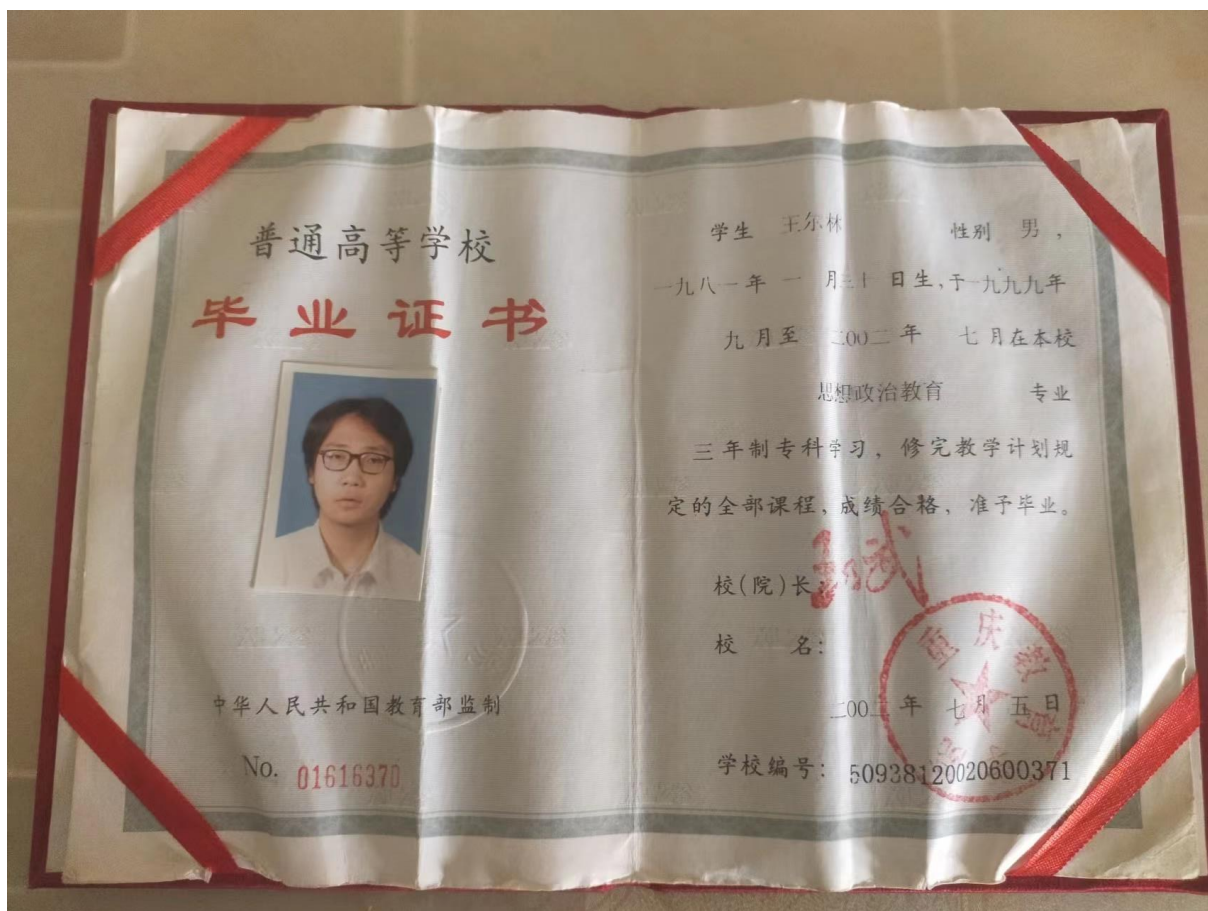 普通高等学校
毕业证书
中华人民共和国教育部监制
No. 01616370
学生 王尔林 性别 男，
一九八一年 一 月三十 日生，于一九九九年
九月至 二00二 年 七月在本校
思想政治教育 专业
三年制专科学习，修完教学计划规
定的全部课程，成绩合格，准予毕业。
校(院)长：
校 名：
重庆教育学院
二00二 年 七月 五日
学校编号：50938120020600371